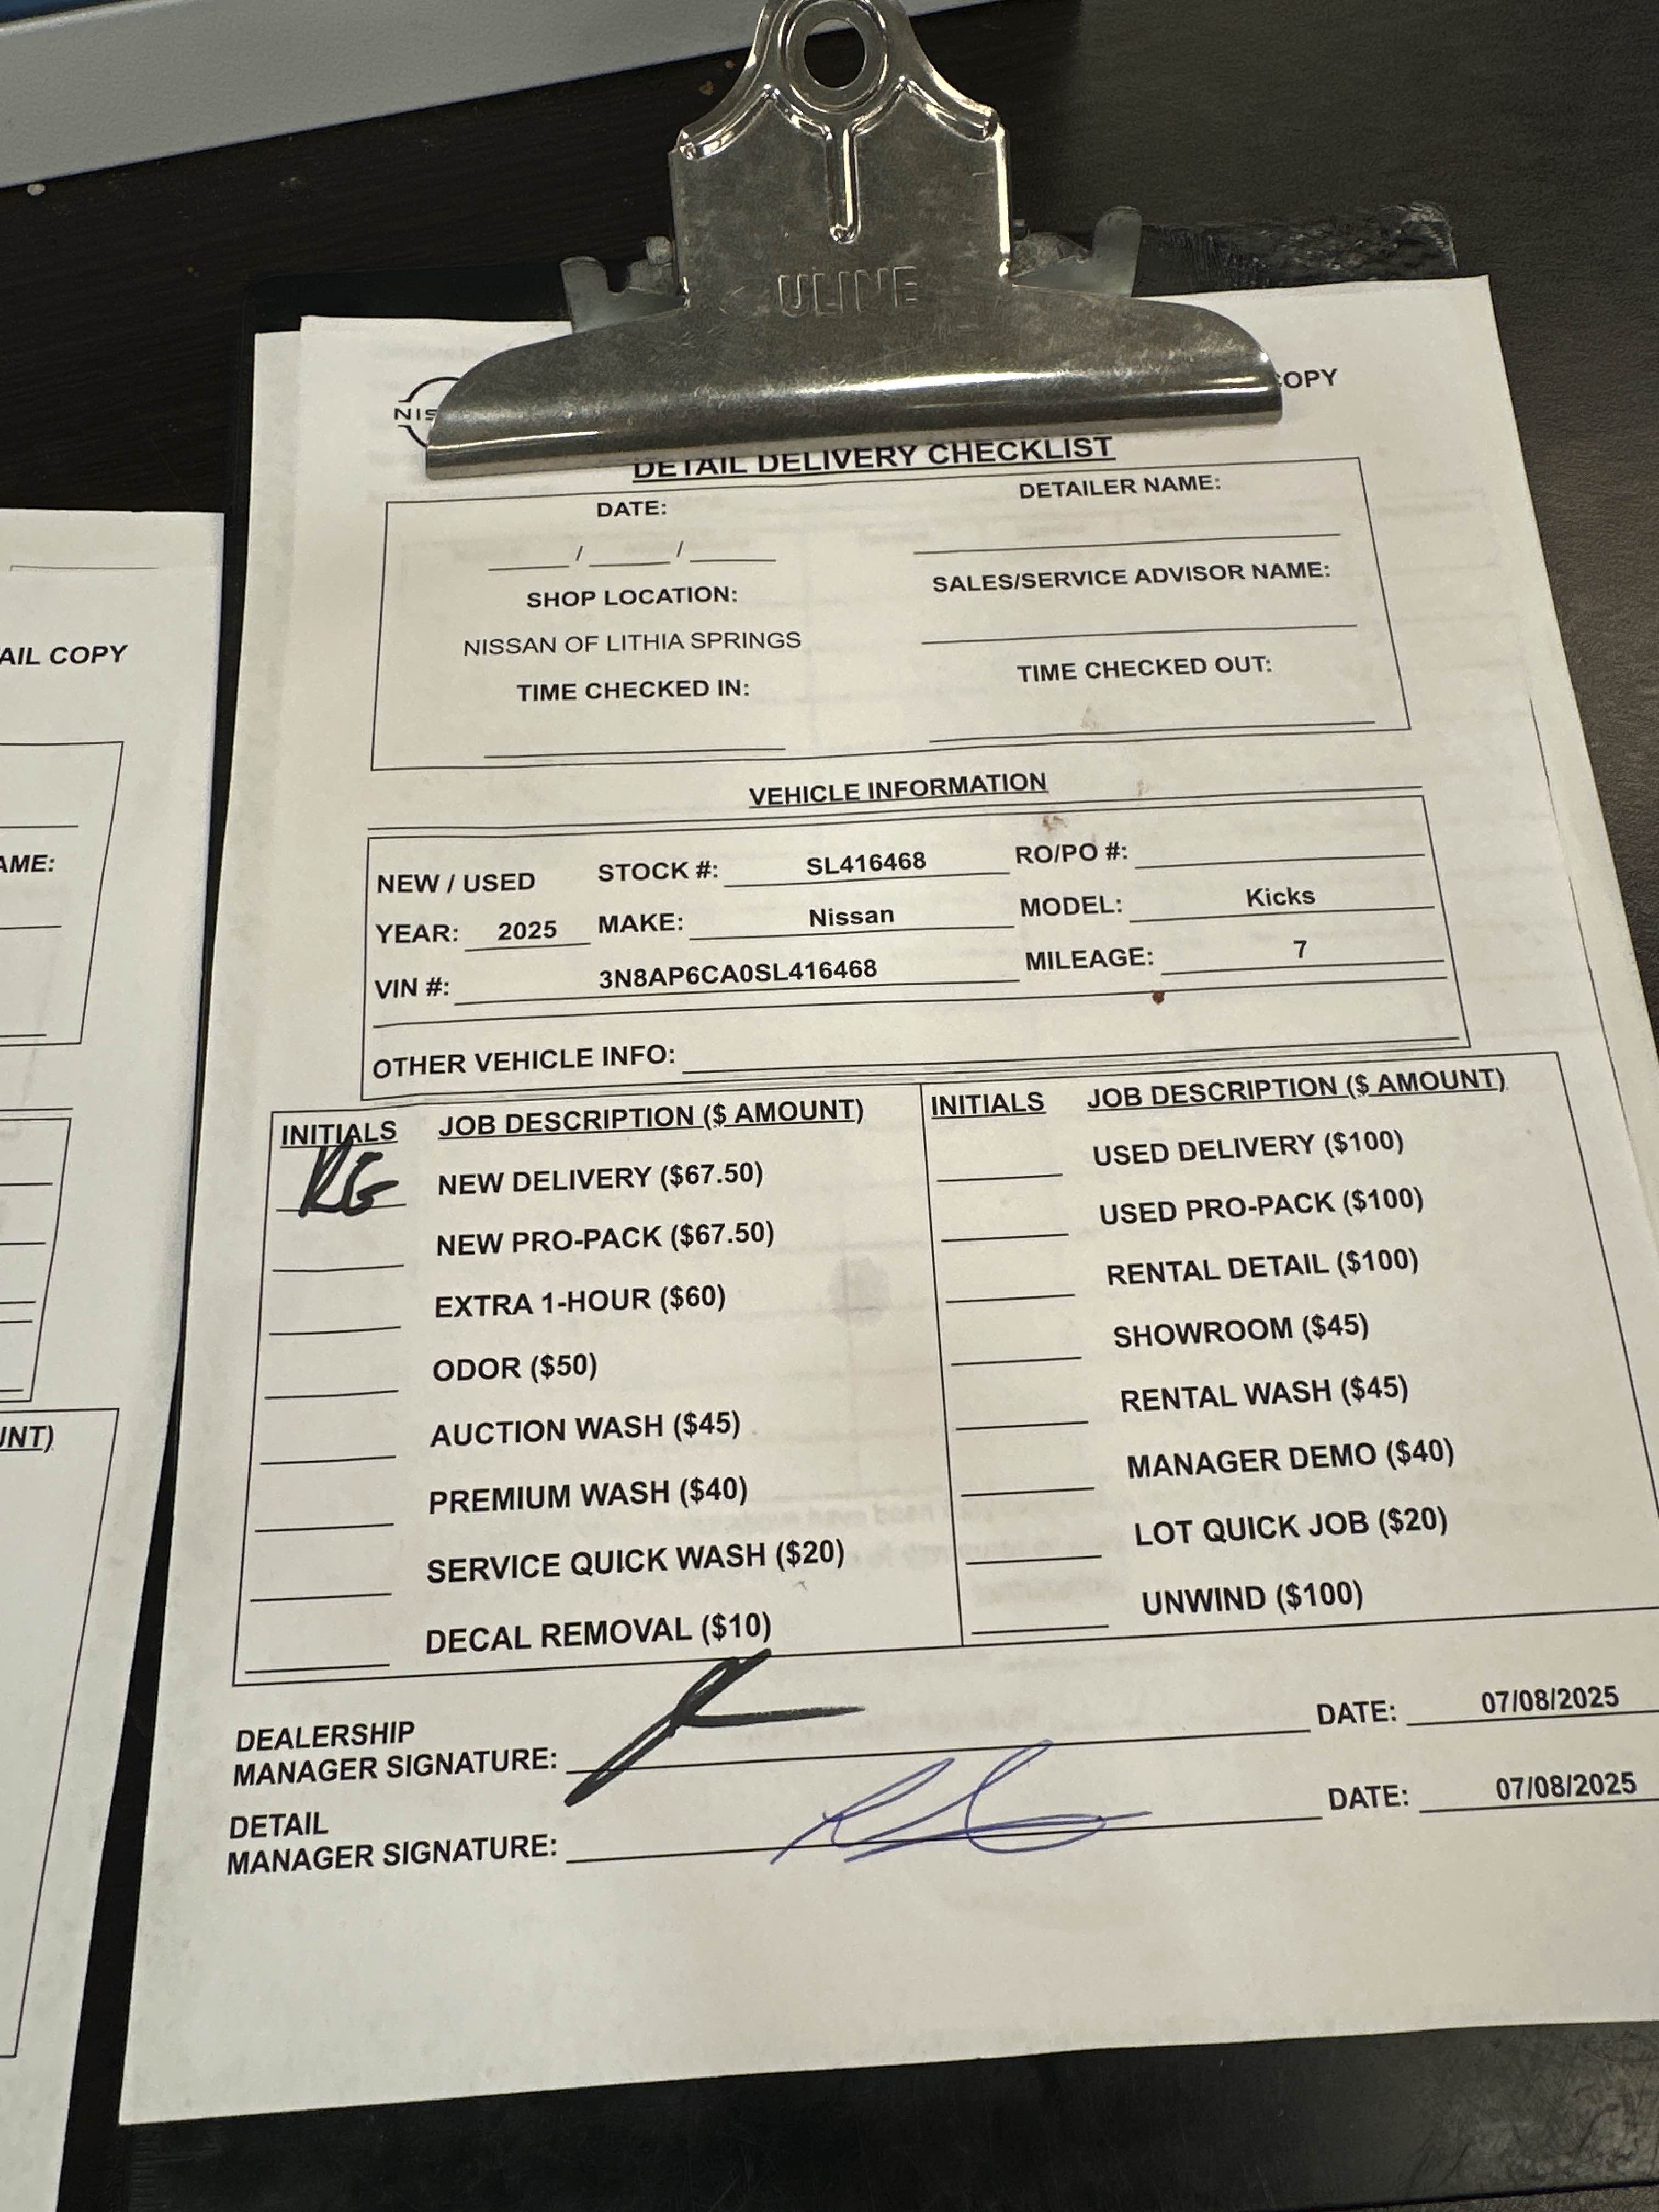 ULINE
NIS
OPY
DETAIL DELIVERY CHECKLIST
DATE:
DETAILER NAME:
/ /
SHOP LOCATION:
SALES/SERVICE ADVISOR NAME:
NISSAN OF LITHIA SPRINGS
TIME CHECKED IN:
TIME CHECKED OUT:
VEHICLE INFORMATION
NEW / USED STOCK #: SL416468 RO/PO #:
YEAR: 2025 MAKE: Nissan MODEL: Kicks
VIN #: 3N8AP6CA0SL416468 MILEAGE: 7
OTHER VEHICLE INFO:
INITIALS JOB DESCRIPTION ($ AMOUNT)
RG NEW DELIVERY ($67.50)
NEW PRO-PACK ($67.50)
EXTRA 1-HOUR ($60)
ODOR ($50)
AUCTION WASH ($45)
PREMIUM WASH ($40)
SERVICE QUICK WASH ($20)
DECAL REMOVAL ($10)
INITIALS JOB DESCRIPTION ($ AMOUNT)
USED DELIVERY ($100)
USED PRO-PACK ($100)
RENTAL DETAIL ($100)
SHOWROOM ($45)
RENTAL WASH ($45)
MANAGER DEMO ($40)
LOT QUICK JOB ($20)
UNWIND ($100)
DEALERSHIP
MANAGER SIGNATURE: DATE: 07/08/2025
DETAIL
MANAGER SIGNATURE: DATE: 07/08/2025
AIL COPY
AME:
UNT)